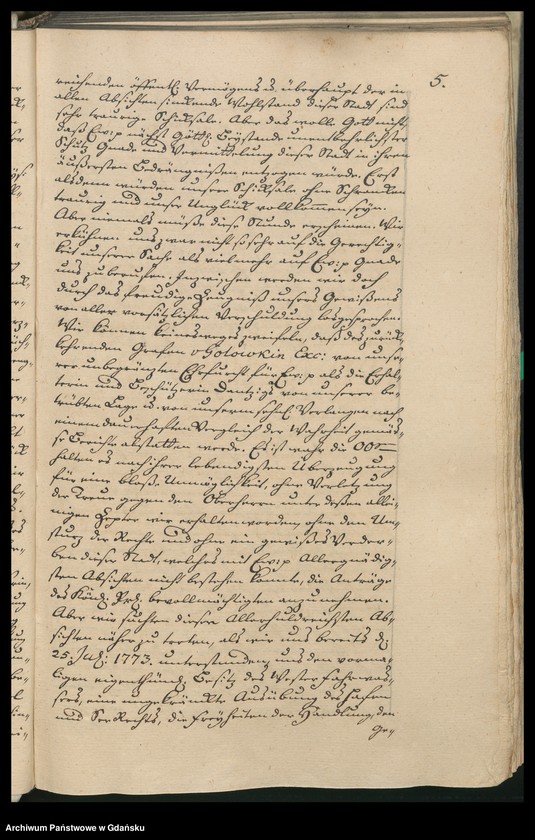 5.
reichenden öffentl. Vermögens u. überhaupt der in
allen Absichten sinkende Wohlstand dieser Stadt sind
sehr traurige Schiksale. Aber das wolle Gott nicht,
daß Ew: nächst Göttl. Beystande unentbehrlichster
Schutz Gnade und Vermittelung dieser Stadt in ihren
äußersten Bedrängnißen entzogen würde. Erst
alsdenn würden unsre Schiksale ohne Schranken
traurig und unser Unglük vollkommen seyn.
Aber niemals müße diese Stunde erscheinen. Wir
erkühnen uns zwar nicht so sehr auf die Gerechtig-
keit unserer Sache als vielmehr auf Ew: Gnade
uns zu berufen. Inzwischen werden wir doch
durch das freudige Zeugniß unsers Gewißens
von aller vorsetzlichen Verschuldung losgesprochen.
Wir können keinesweges zweifeln, daß des zurük-
kehrenden Grafen v Golowkin Exc: von unse-
rer unbegränzten Ehrfurcht für Ew: als die Erhal-
terin und Beschützerin Dantzigs von unserer be-
trübten Lage u. von unserm sehnl. Verlangen nach
einem dauerhaften Vergleich der Wahrheit gemäs-
se Berichte abstatten werde. Es ist wahr die OO
halten es nach ihrer lebendigsten Überzeugung
für eine bloße Unmöglichkeit, ohne Verletzung
der Treue gegen den Oberherrn unter deßen allei-
nigen Zepter wir erhalten worden, ohne den Um-
sturz der Rechte und ohne ein gewißes Verder-
ben dieser Stadt, welches mit Ew: Allergnädig-
sten Absichten nicht bestehen konnte, die Anträge
des Königl. Bevollmächtigten anzunehmen.
Aber wir suchten diesen Allerhuldreichsten Ab-
sichten näher zu treten, als wir uns bereits d.
25. Jul: 1773. unterstanden, uns den vorma-
ligen eigenthüml. Besitz des Wester Fahrwas-
sers, eine ungekränkte Ausübung des Hafen
und See Rechts, die Freyheiten der Handlung, den
Ge-
Archiwum Państwowe w Gdańsku